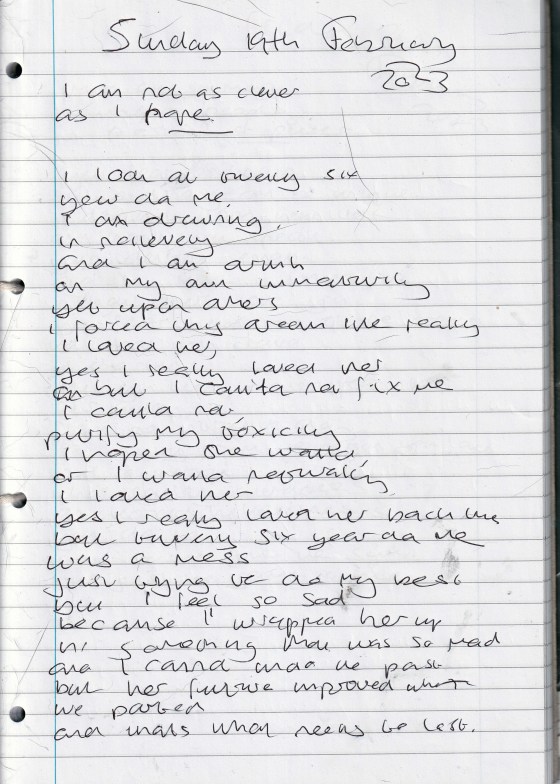 Sunday 19th February
2023
I am not as clever
as I hope.
I look at twenty six
year old me,
I am drowning,
in naivety
and I am drunk
on my own immaturity
yet upon others
I forced this dream like reality
I loved her,
yes I really loved her
but I could not fix me
I could not,
purify my toxicity
I hoped she would,
or I would naturally
I loved her
yes I really loved her back then
but twenty six year old me
was a mess
just trying to do my best
but I feel so sad
because I wrapped her up
in something that was so mad
and I cannot undo the past
but her future improved when
we parted
and thats what needs to last.